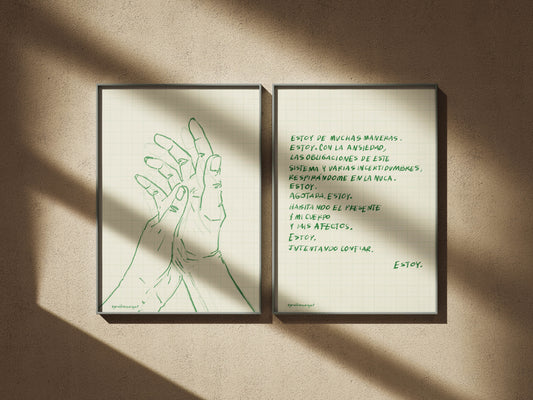 ESTOY DE MUCHAS MANERAS.
ESTOY. CON LA ANSIEDAD,
LAS OBLIGACIONES DE ESTE
SISTEMA Y VARIAS INCERTIDUMBRES,
RESPIRÁNDOME EN LA NUCA.
ESTOY.
AGOTADA. ESTOY.
HABITANDO EL PRESENTE
Y MI CUERPO
Y MIS AFECTOS.
ESTOY.
INTENTANDO CONFIAR.
ESTOY.